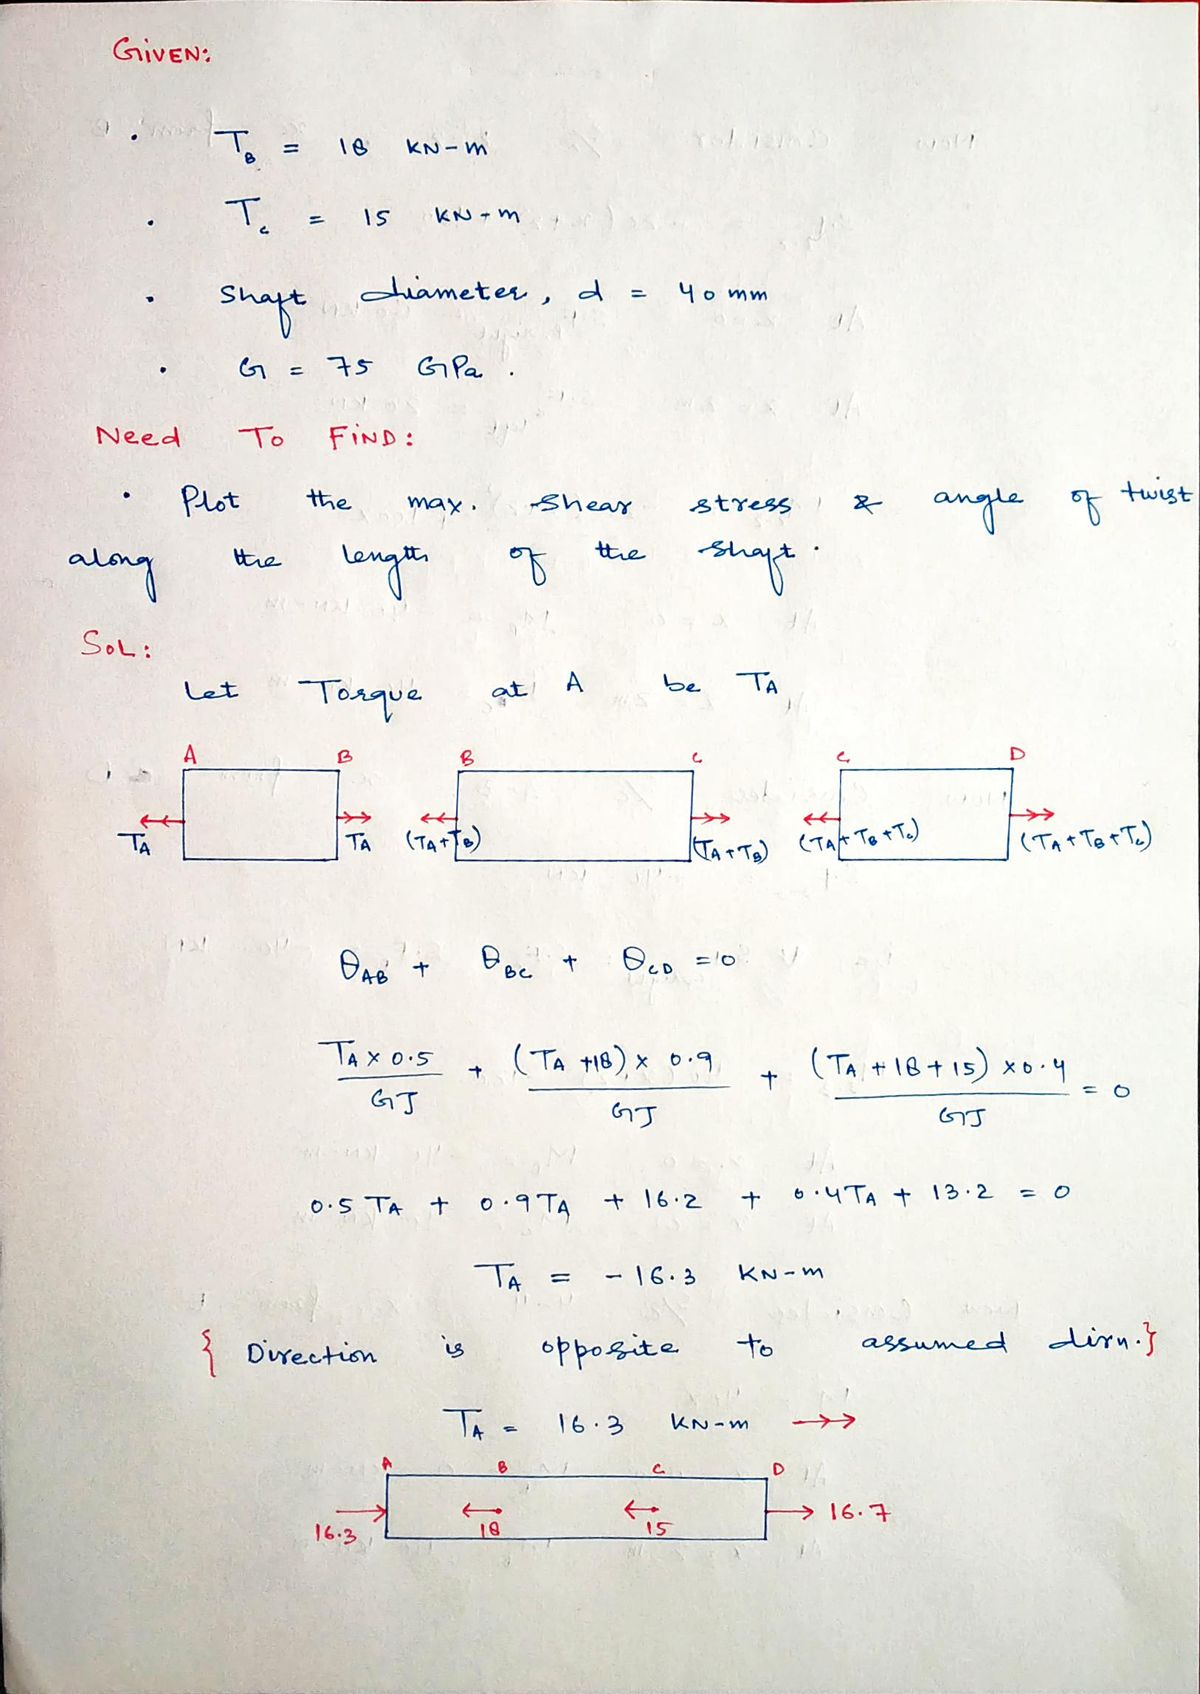 GIVEN:
• T_B = 18 KN-m
• T_C = 15 KN-m
• Shaft diameter, d = 40 mm
• G = 75 GPa.
Need To FIND:
• Plot the max. shear stress & angle of twist
along the length of the shaft.
SOL:
Let Torque at A be TA
A B B C C D
TA TA (TA+TB) (TA+TB) (TA+TB+Tc) (TA+TB+Tc)
θAB + θBC + θCD = 0
TA x 0.5 / GJ + (TA +18) x 0.9 / GJ + (TA +18+15) x0.4 / GJ = 0
0.5 TA + 0.9TA + 16.2 + 0.4TA + 13.2 = 0
TA = -16.3 KN-m
{ Direction is opposite to assumed dirn.}
TA = 16.3 KN-m →→
A B C D
16.3 18 15 16.7